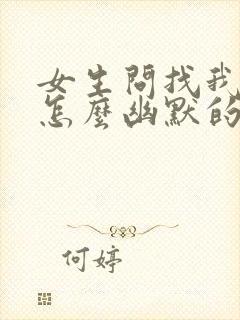 女生問找我
怎麼幽默的
何婷